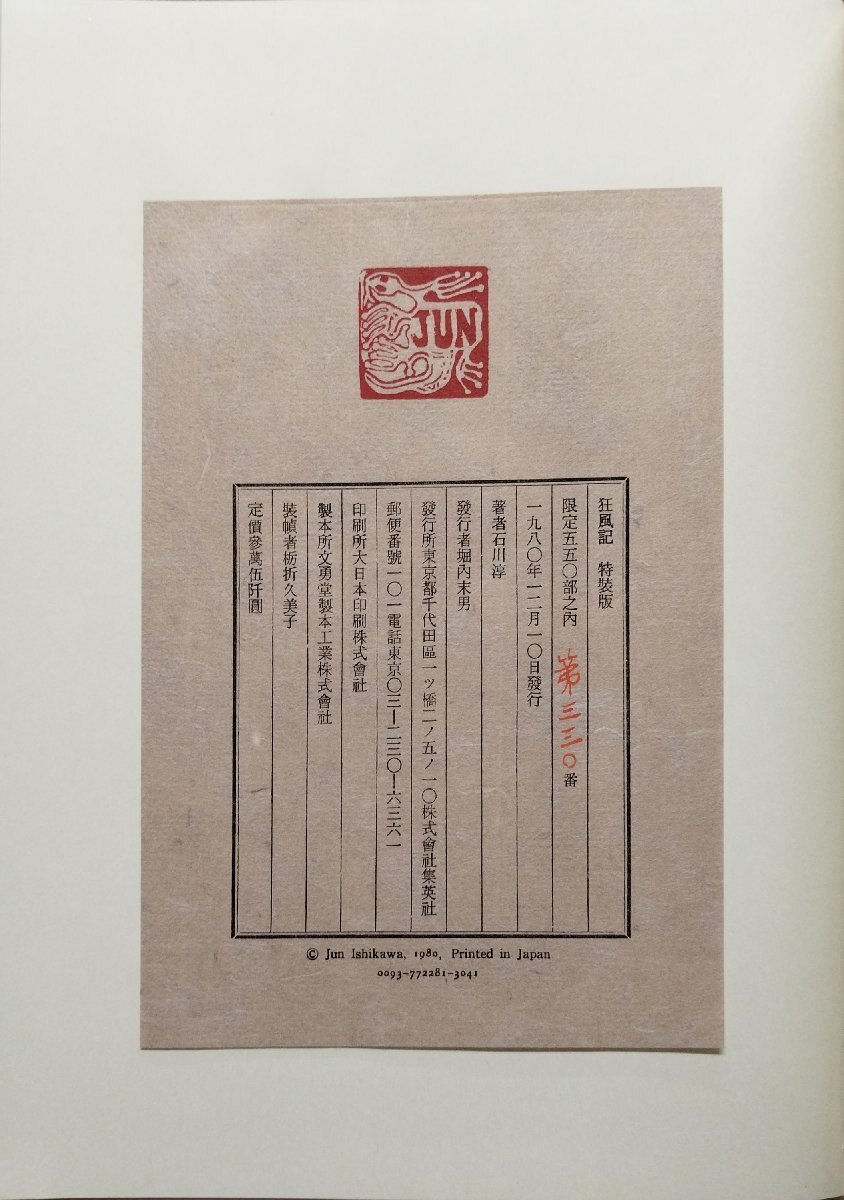 JUN
狂風記　特裝版
限定五五〇部之內　第三三〇番
一九八〇年一二月一〇日發行
著者石川淳
發行者堀內末男
發行所東京都千代田區一ツ橋二ノ五ノ一〇株式會社集英社
郵便番號一〇一電話東京〇三ー二三〇ー六三六一
印刷所大日本印刷株式會社
製本所文勇堂製本工業株式會社
裝幀者栃折久美子
定價參萬伍阡圓
© Jun Ishikawa, 1980, Printed in Japan
0093-772281-3041